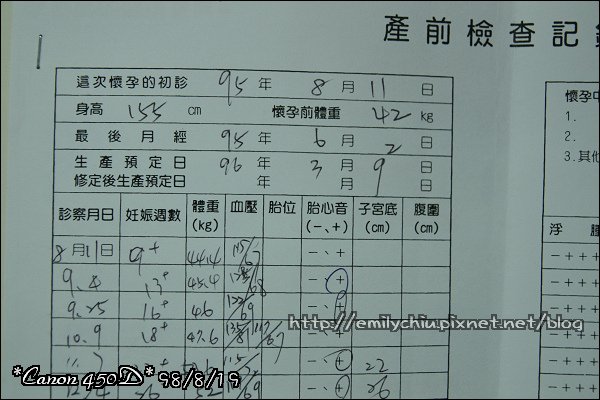 產前檢查記
這次懷孕的初診 95 年 8 月 11 日
身高 155 cm 懷孕前體重 42 kg
最後月經 95 年 6 月 2 日
生產預定日 96 年 3 月 9 日
修定後生產預定日 年 月 日
診察月日 妊娠週數 體重(kg) 血壓 胎位 胎心音(−、+) 子宮底(cm) 腹圍(cm)
8月11日 9+ 44.4 115/67 −、+
9.4 13+ 45.4 −、+
9.25 16+ 46 −、+
10.9 18+ 47.6 135/81 117/67 −、+
−、+ 22
−、+ 26
懷孕中
1.
2.
3.其他
浮腫
−++++
−+++
−+++
−+++
−+++
−+++
http://emilychiu.pixnet.net/blog
*Canon 450D* 98/8/19